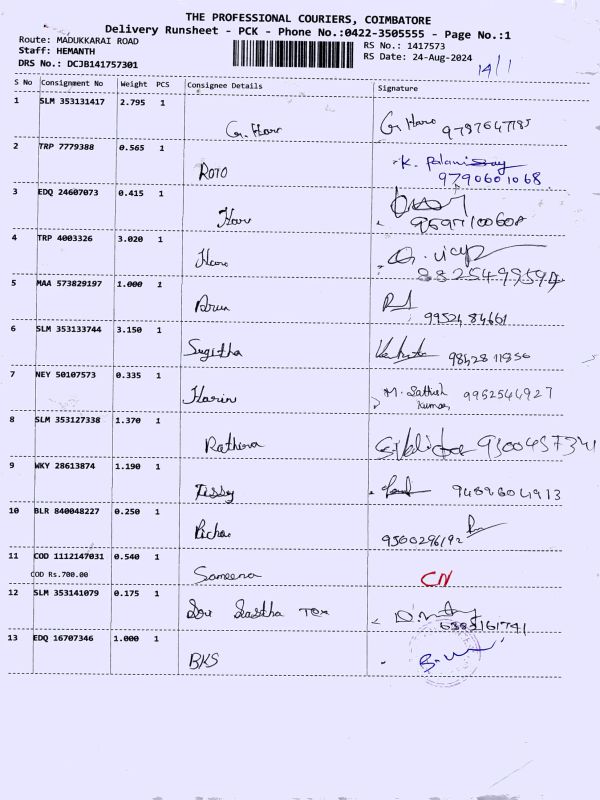 THE PROFESSIONAL COURIERS, COIMBATORE
Delivery Runsheet - PCK - Phone No.:0422-3505555 - Page No.:1
Route: MADUKKARAI ROAD
RS No.: 1417573
Staff: HEMANTH
RS Date: 24-Aug-2024
DRS No.: DCJB141757301
14/1
S No Consignment No Weight PCS Consignee Details Signature
1 SLM 353131417 2.795 1
G. Hari G. Hari
2 TRP 7779388 0.565 1
ROTO K. 9790601068
3 EDQ 24607073 0.415 1
Hari
4 TRP 4003326 3.020 1
G. vijay
5 MAA 573829197 1.000 1
Arun 99524 84661
6 SLM 353133744 3.150 1
Sugitha 98428 11856
7 NEY 50107573 0.335 1
Harin M. Sathish Kumar, 9952544927
8 SLM 353127338 1.370 1
Rathina
9 WKY 28613874 1.190 1
Jessy 9489604913
10 BLR 840048227 0.250 1
9500296192
11 COD 1112147031 0.540 1
COD Rs.700.00 Sameena CN
12 SLM 353141079 0.175 1
Sri Sastha Tex
13 EDQ 16707346 1.000 1
BKS